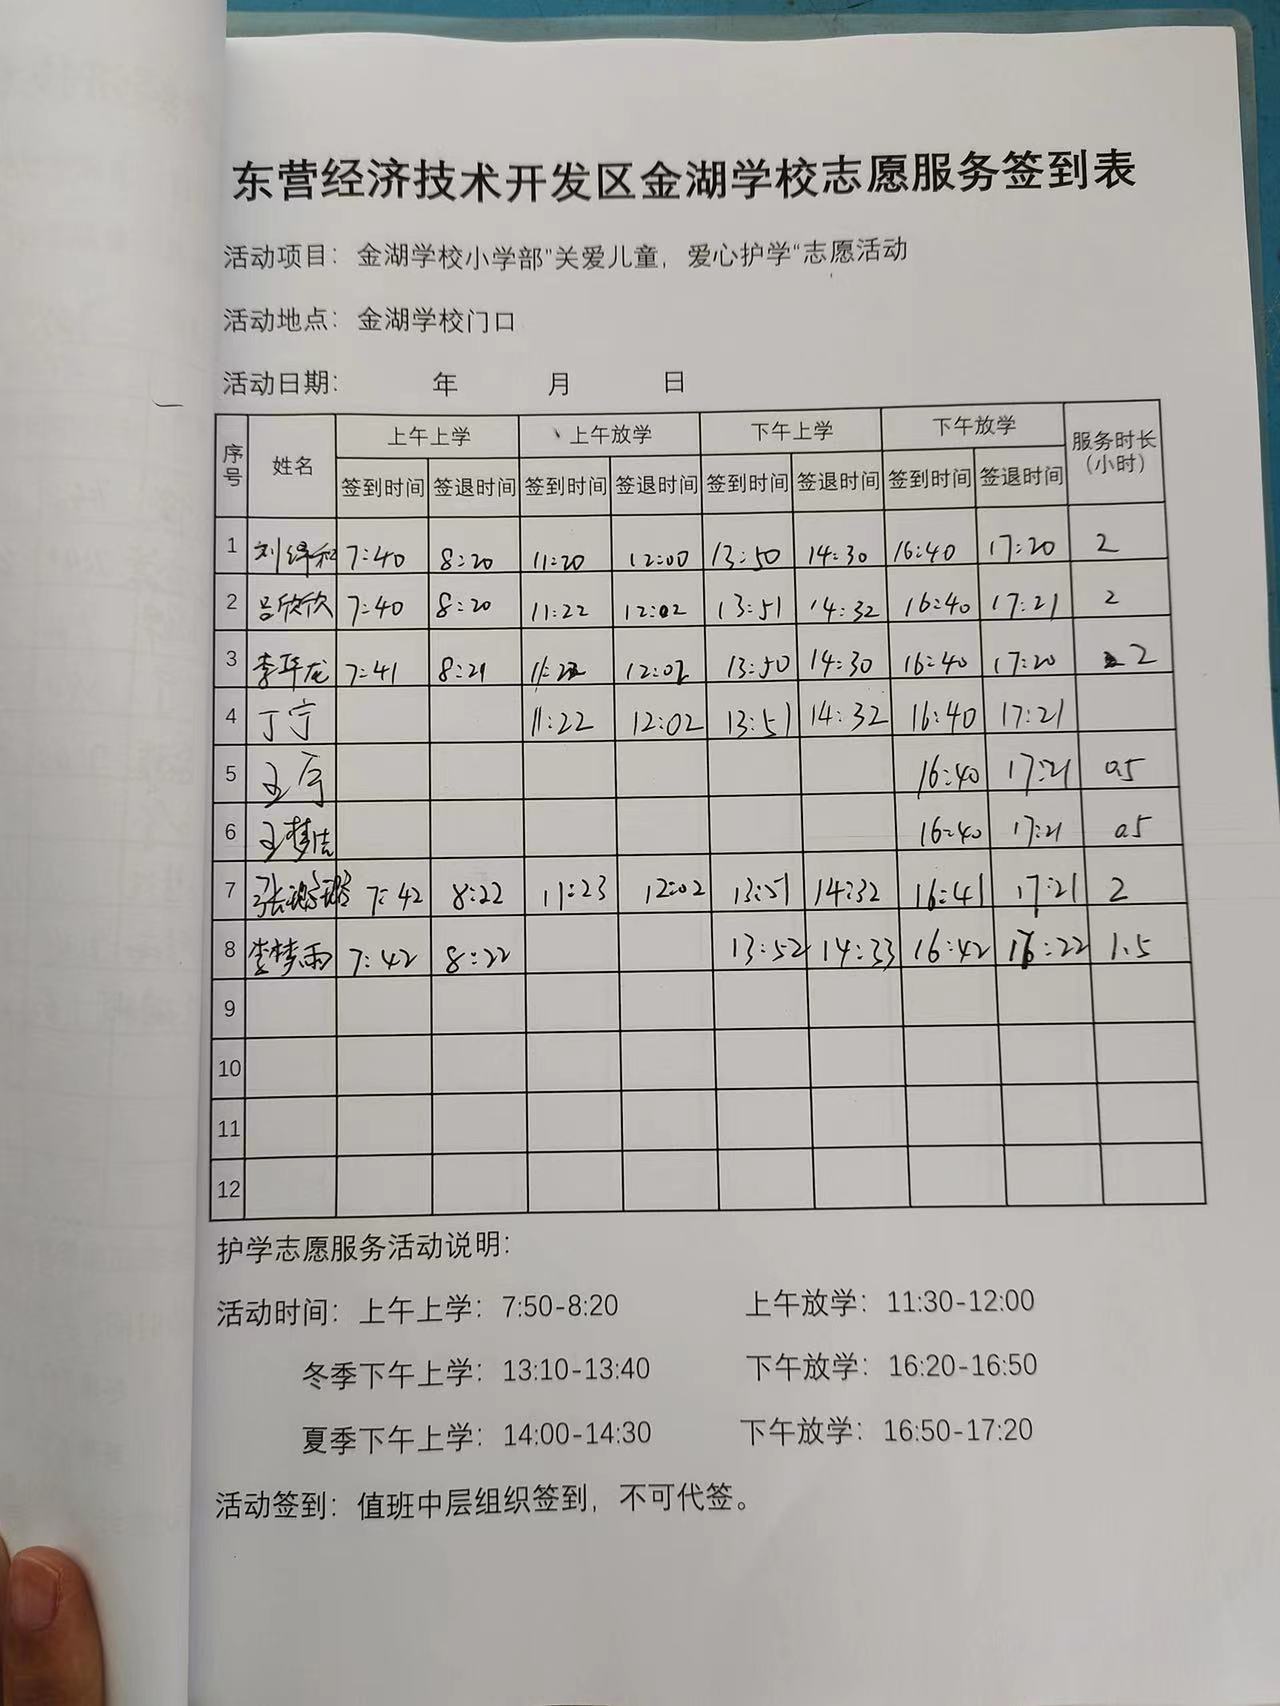 东营经济技术开发区金湖学校志愿服务签到表
活动项目：金湖学校小学部"关爱儿童，爱心护学"志愿活动
活动地点：金湖学校门口
活动日期： 年 月 日
序号 姓名 上午上学 上午放学 下午上学 下午放学 服务时长（小时）
签到时间 签退时间 签到时间 签退时间 签到时间 签退时间 签到时间 签退时间
1 7:40 8:20 11:20 12:00 13:50 14:30 16:40 17:20 2
2 吕欣欣 7:40 8:20 11:22 12:02 13:51 14:32 16:40 17:21 2
3 7:41 8:21 11:22 12:02 13:50 14:30 16:40 17:20 2
4 丁宁 11:22 12:02 13:51 14:32 16:40 17:21
5 16:40 17:21 0.5
6 王梦洁 16:40 17:21 0.5
7 7:42 8:22 11:23 12:02 13:51 14:32 16:41 17:21 2
8 李梦雨 7:42 8:22 13:52 14:33 16:42 16:22 1.5
9
10
11
12
护学志愿服务活动说明：
活动时间：上午上学：7:50-8:20 上午放学：11:30-12:00
冬季下午上学：13:10-13:40 下午放学：16:20-16:50
夏季下午上学：14:00-14:30 下午放学：16:50-17:20
活动签到：值班中层组织签到，不可代签。